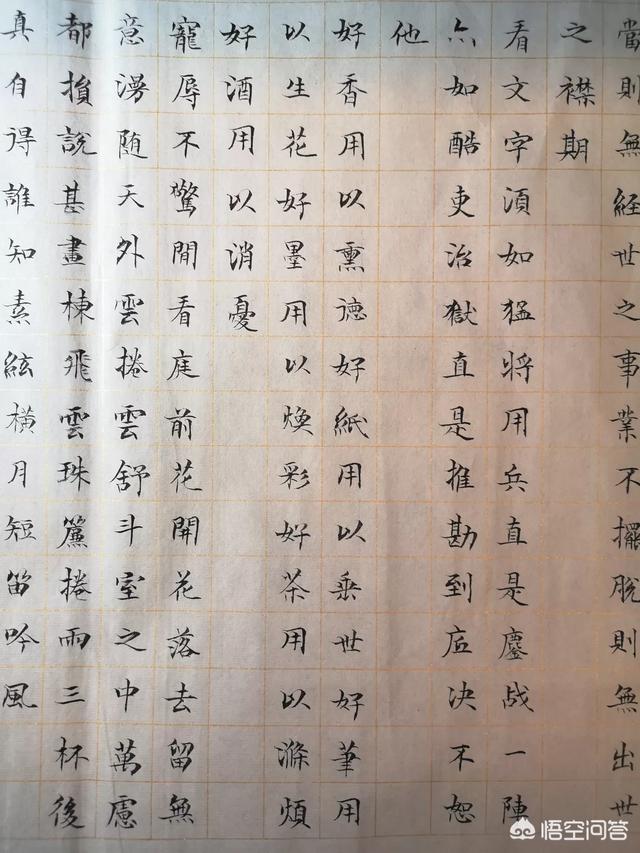 當則無經世之事業不擺脫則無出世
之襟期
看文字須如猛將用兵直是鏖战一陣
亦如酷吏治獄直是推勘到底决不恕
他
好香用以熏德好紙用以垂世好筆用
以生花好墨用以煥彩好茶用以滌煩
好酒用以消憂
寵辱不驚閒看庭前花開花落去留無
意漫随天外雲捲雲舒斗室之中萬慮
都損說甚畫棟飛雲珠簾捲雨三杯後
真自得誰知素絃橫月短笛吟風
悟空问答